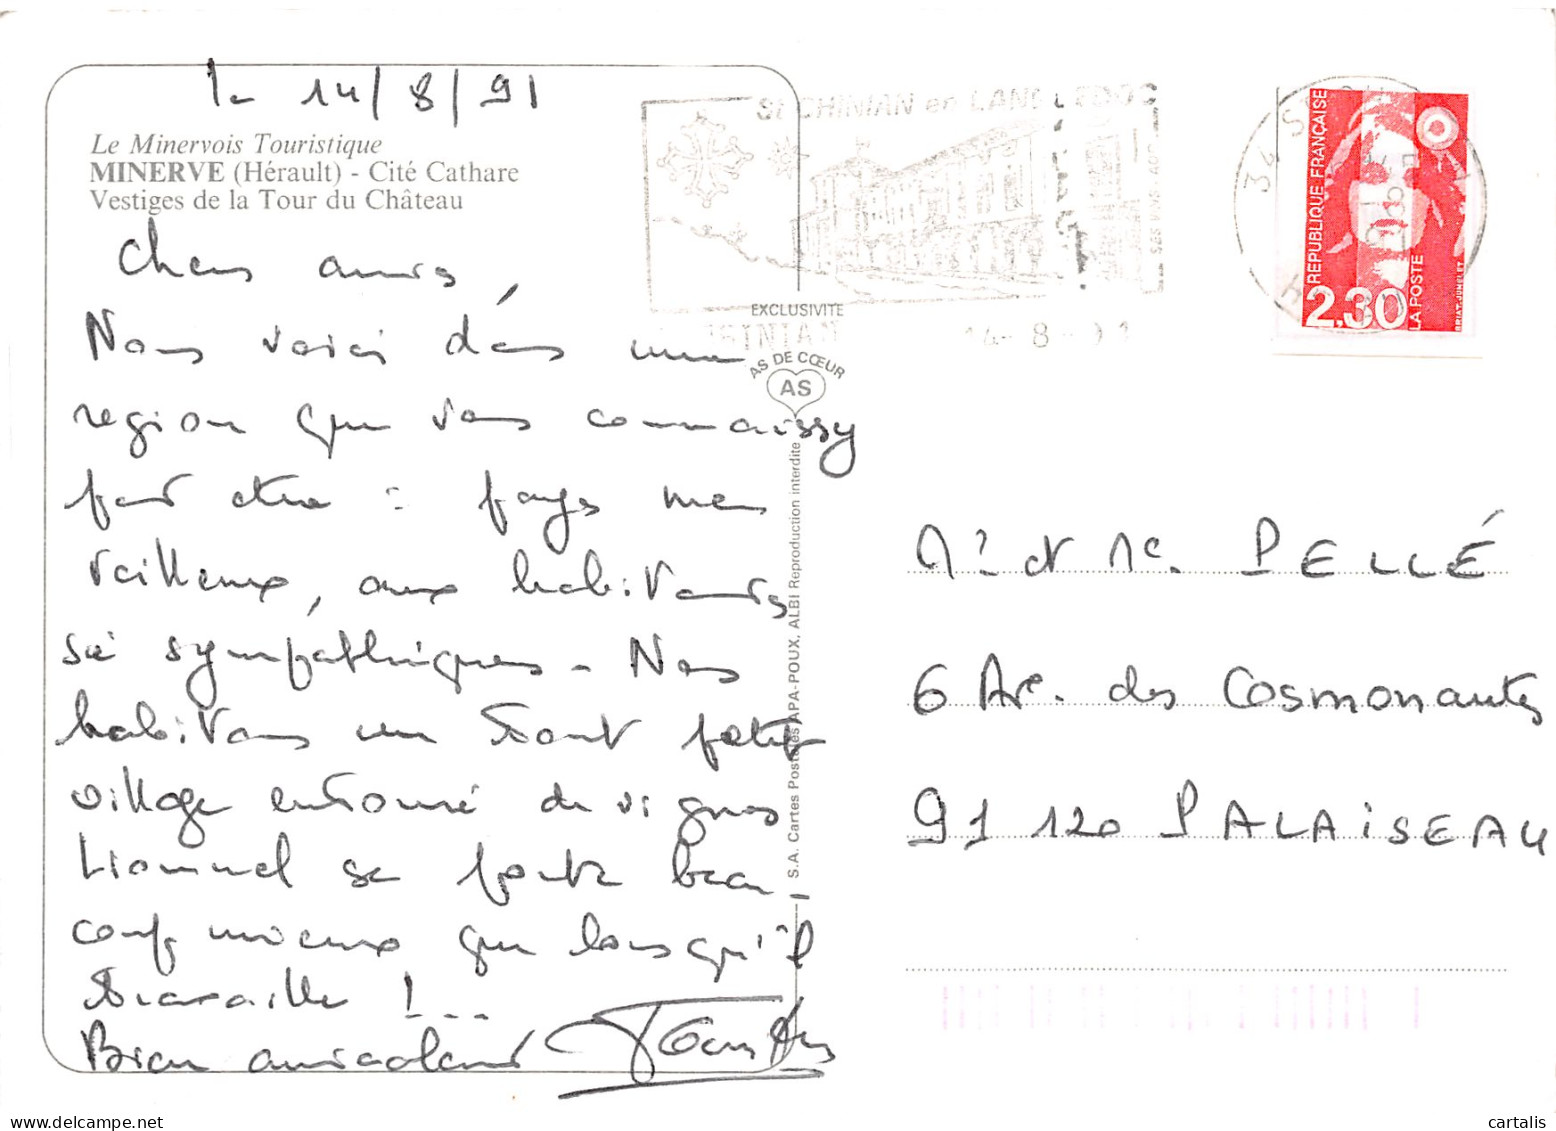 le 14/8/91
Le Minervois Touristique
MINERVE (Hérault) - Cité Cathare
Vestiges de la Tour du Château
Chers amis,
Nous voici dans une
region que vous connaissez
peut etre : pays mer
veilleux, aux habitants
si sympathiques - Nous
habitons un tout petit
village entouré de vignes
Lionnel se porte beau-
coup mieux que lorsqu'il
travaille !...
Bien amicalement
ST CHINIAN en LANGUEDOC
14-8-91
EXCLUSIVITE
AS DE CŒUR
AS
S.A. Cartes Postales APA-POUX, ALBI Reproduction interdite
REPUBLIQUE FRANÇAISE
2,30
LA POSTE
BRIAT-JUMELET
Mr et Me. PELLÉ
6 Ave. des Cosmonautes
91120 PALAISEAU
cartalis